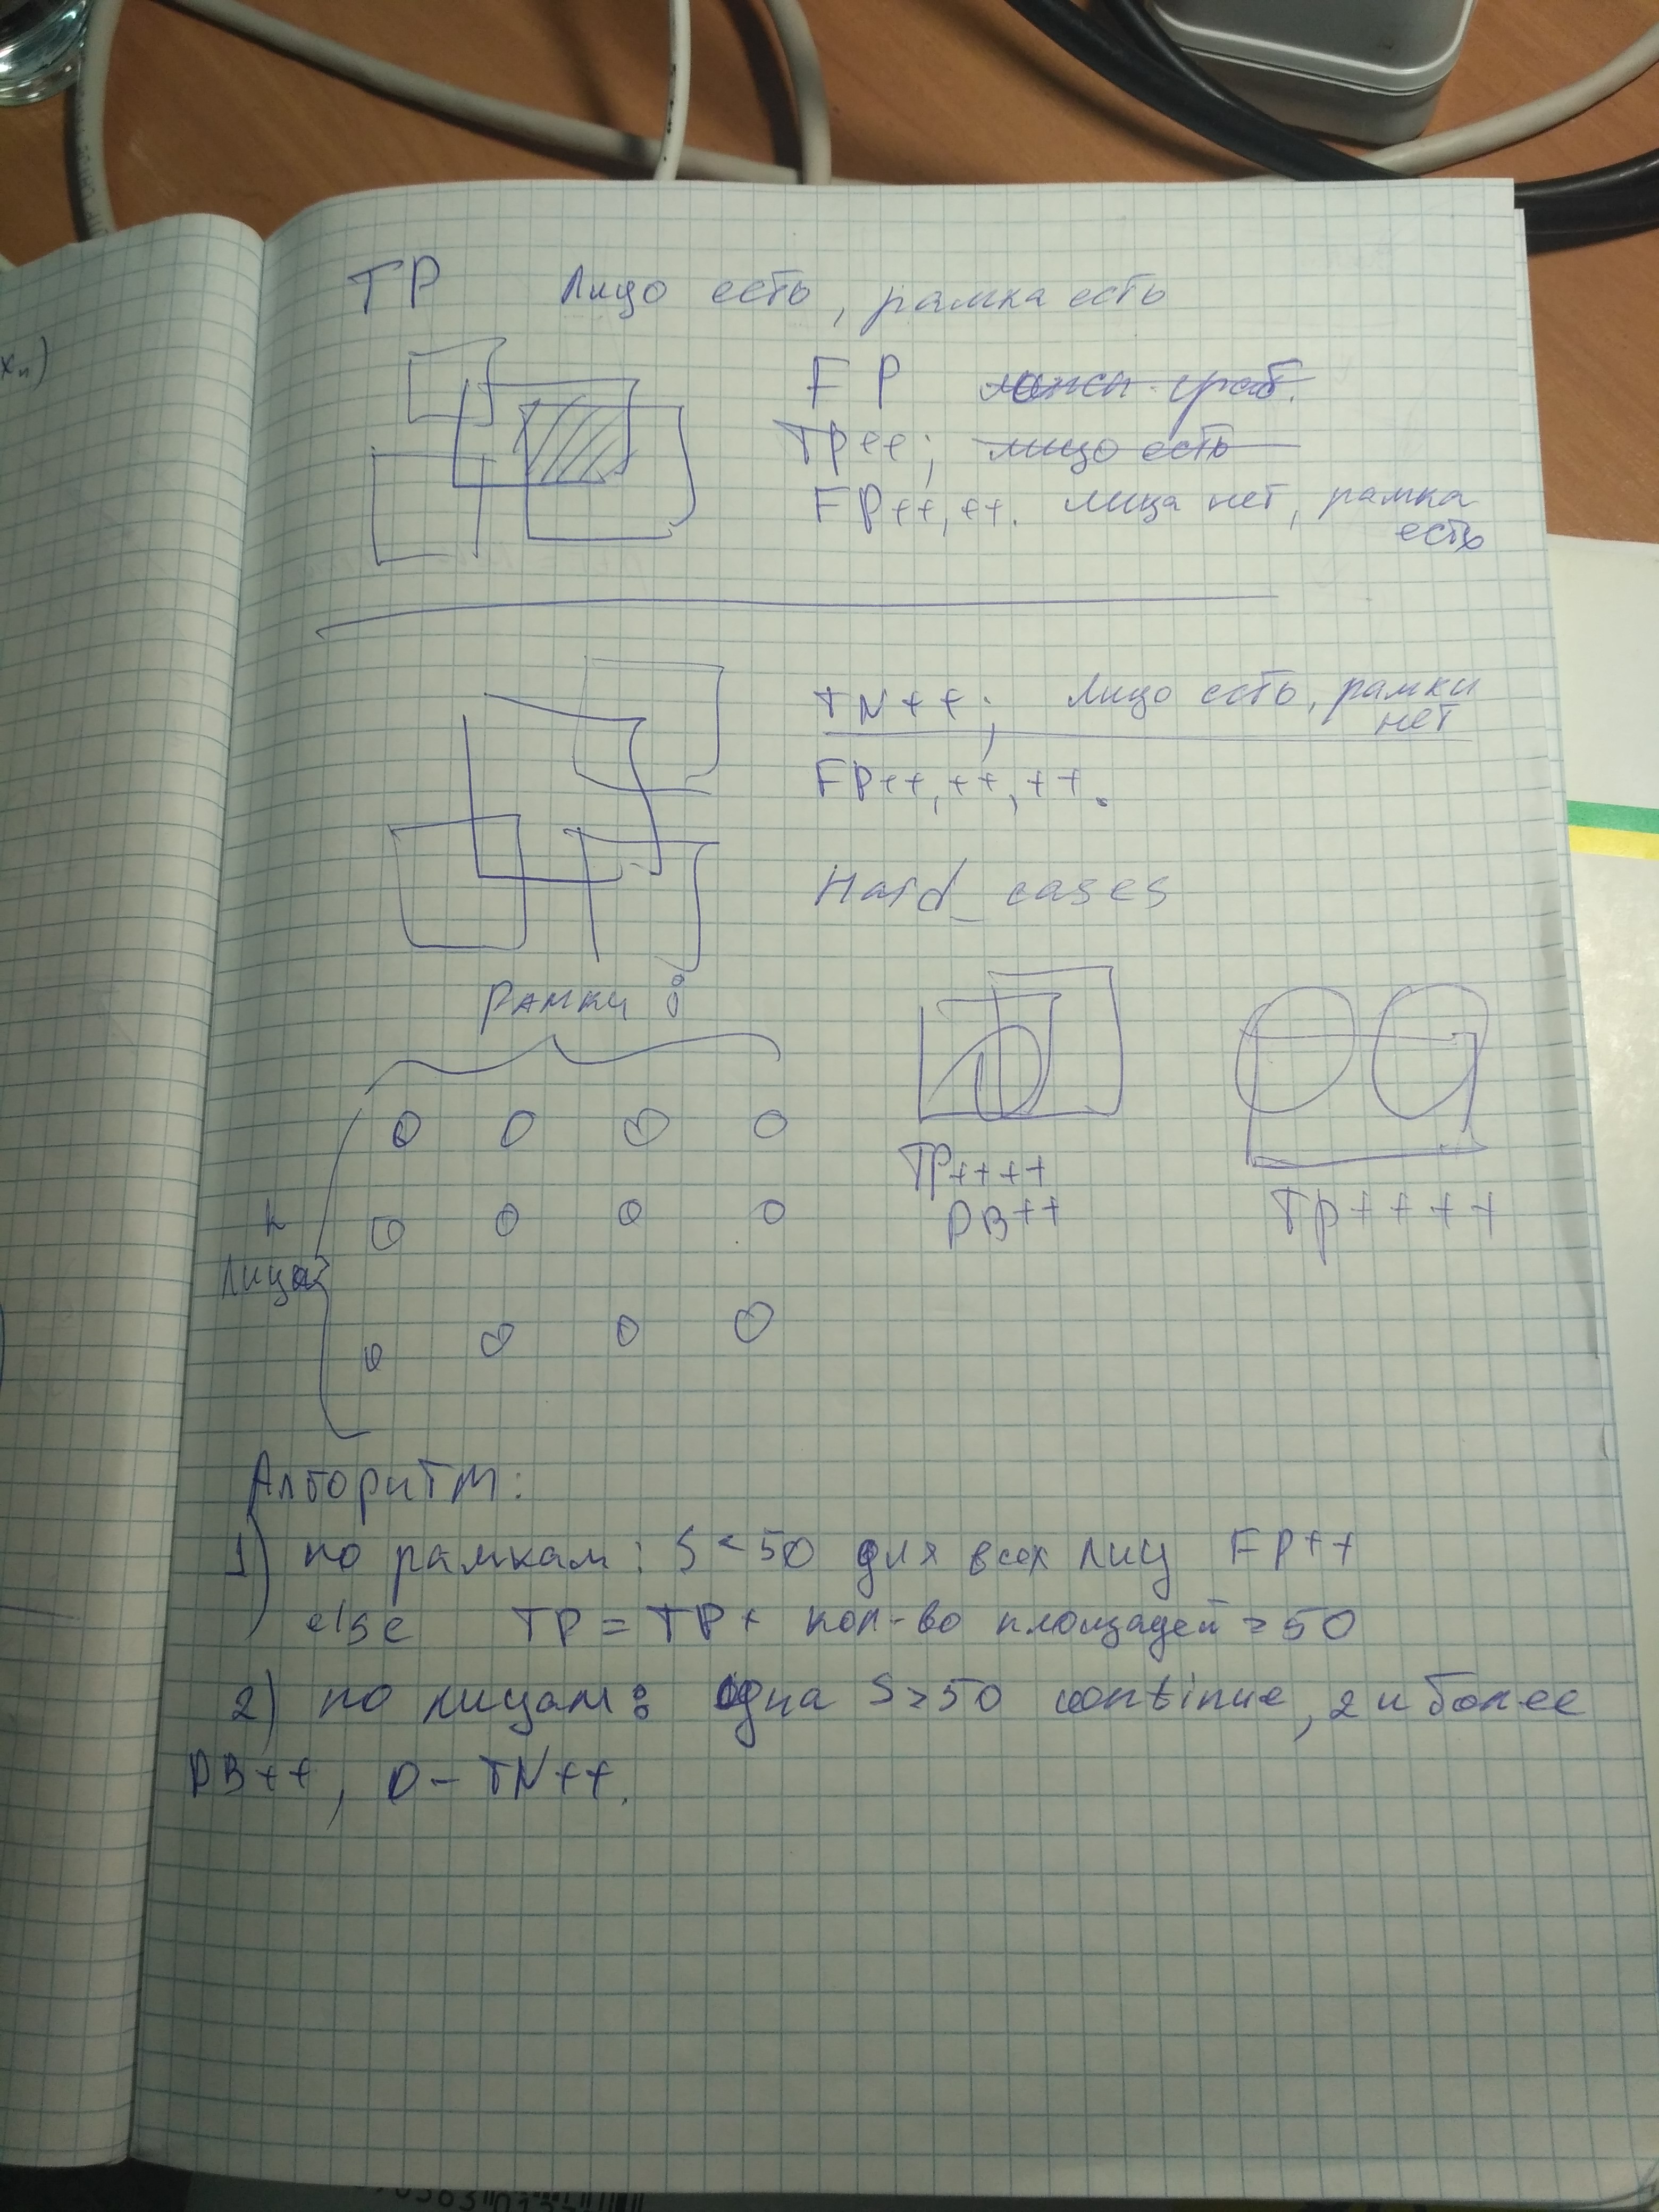 xₙ)
TP Лицо есть, рамка есть
FP ложн. сраб.
TP++; лицо есть
FP++,++. лица нет, рамка
есть
TN++; Лицо есть, рамки
нет
FP++,++,++.
Hard_cases
Рамки
TP++++
DB++
TP++++
Лица
Алгоритм:
1) по рамкам: S<50 для всех лиц FP++
else TP = TP + кол-во площадей ≥50
2) по лицам: Одна S≥50 continue, 2 и более
DB++, 0 – TN++.